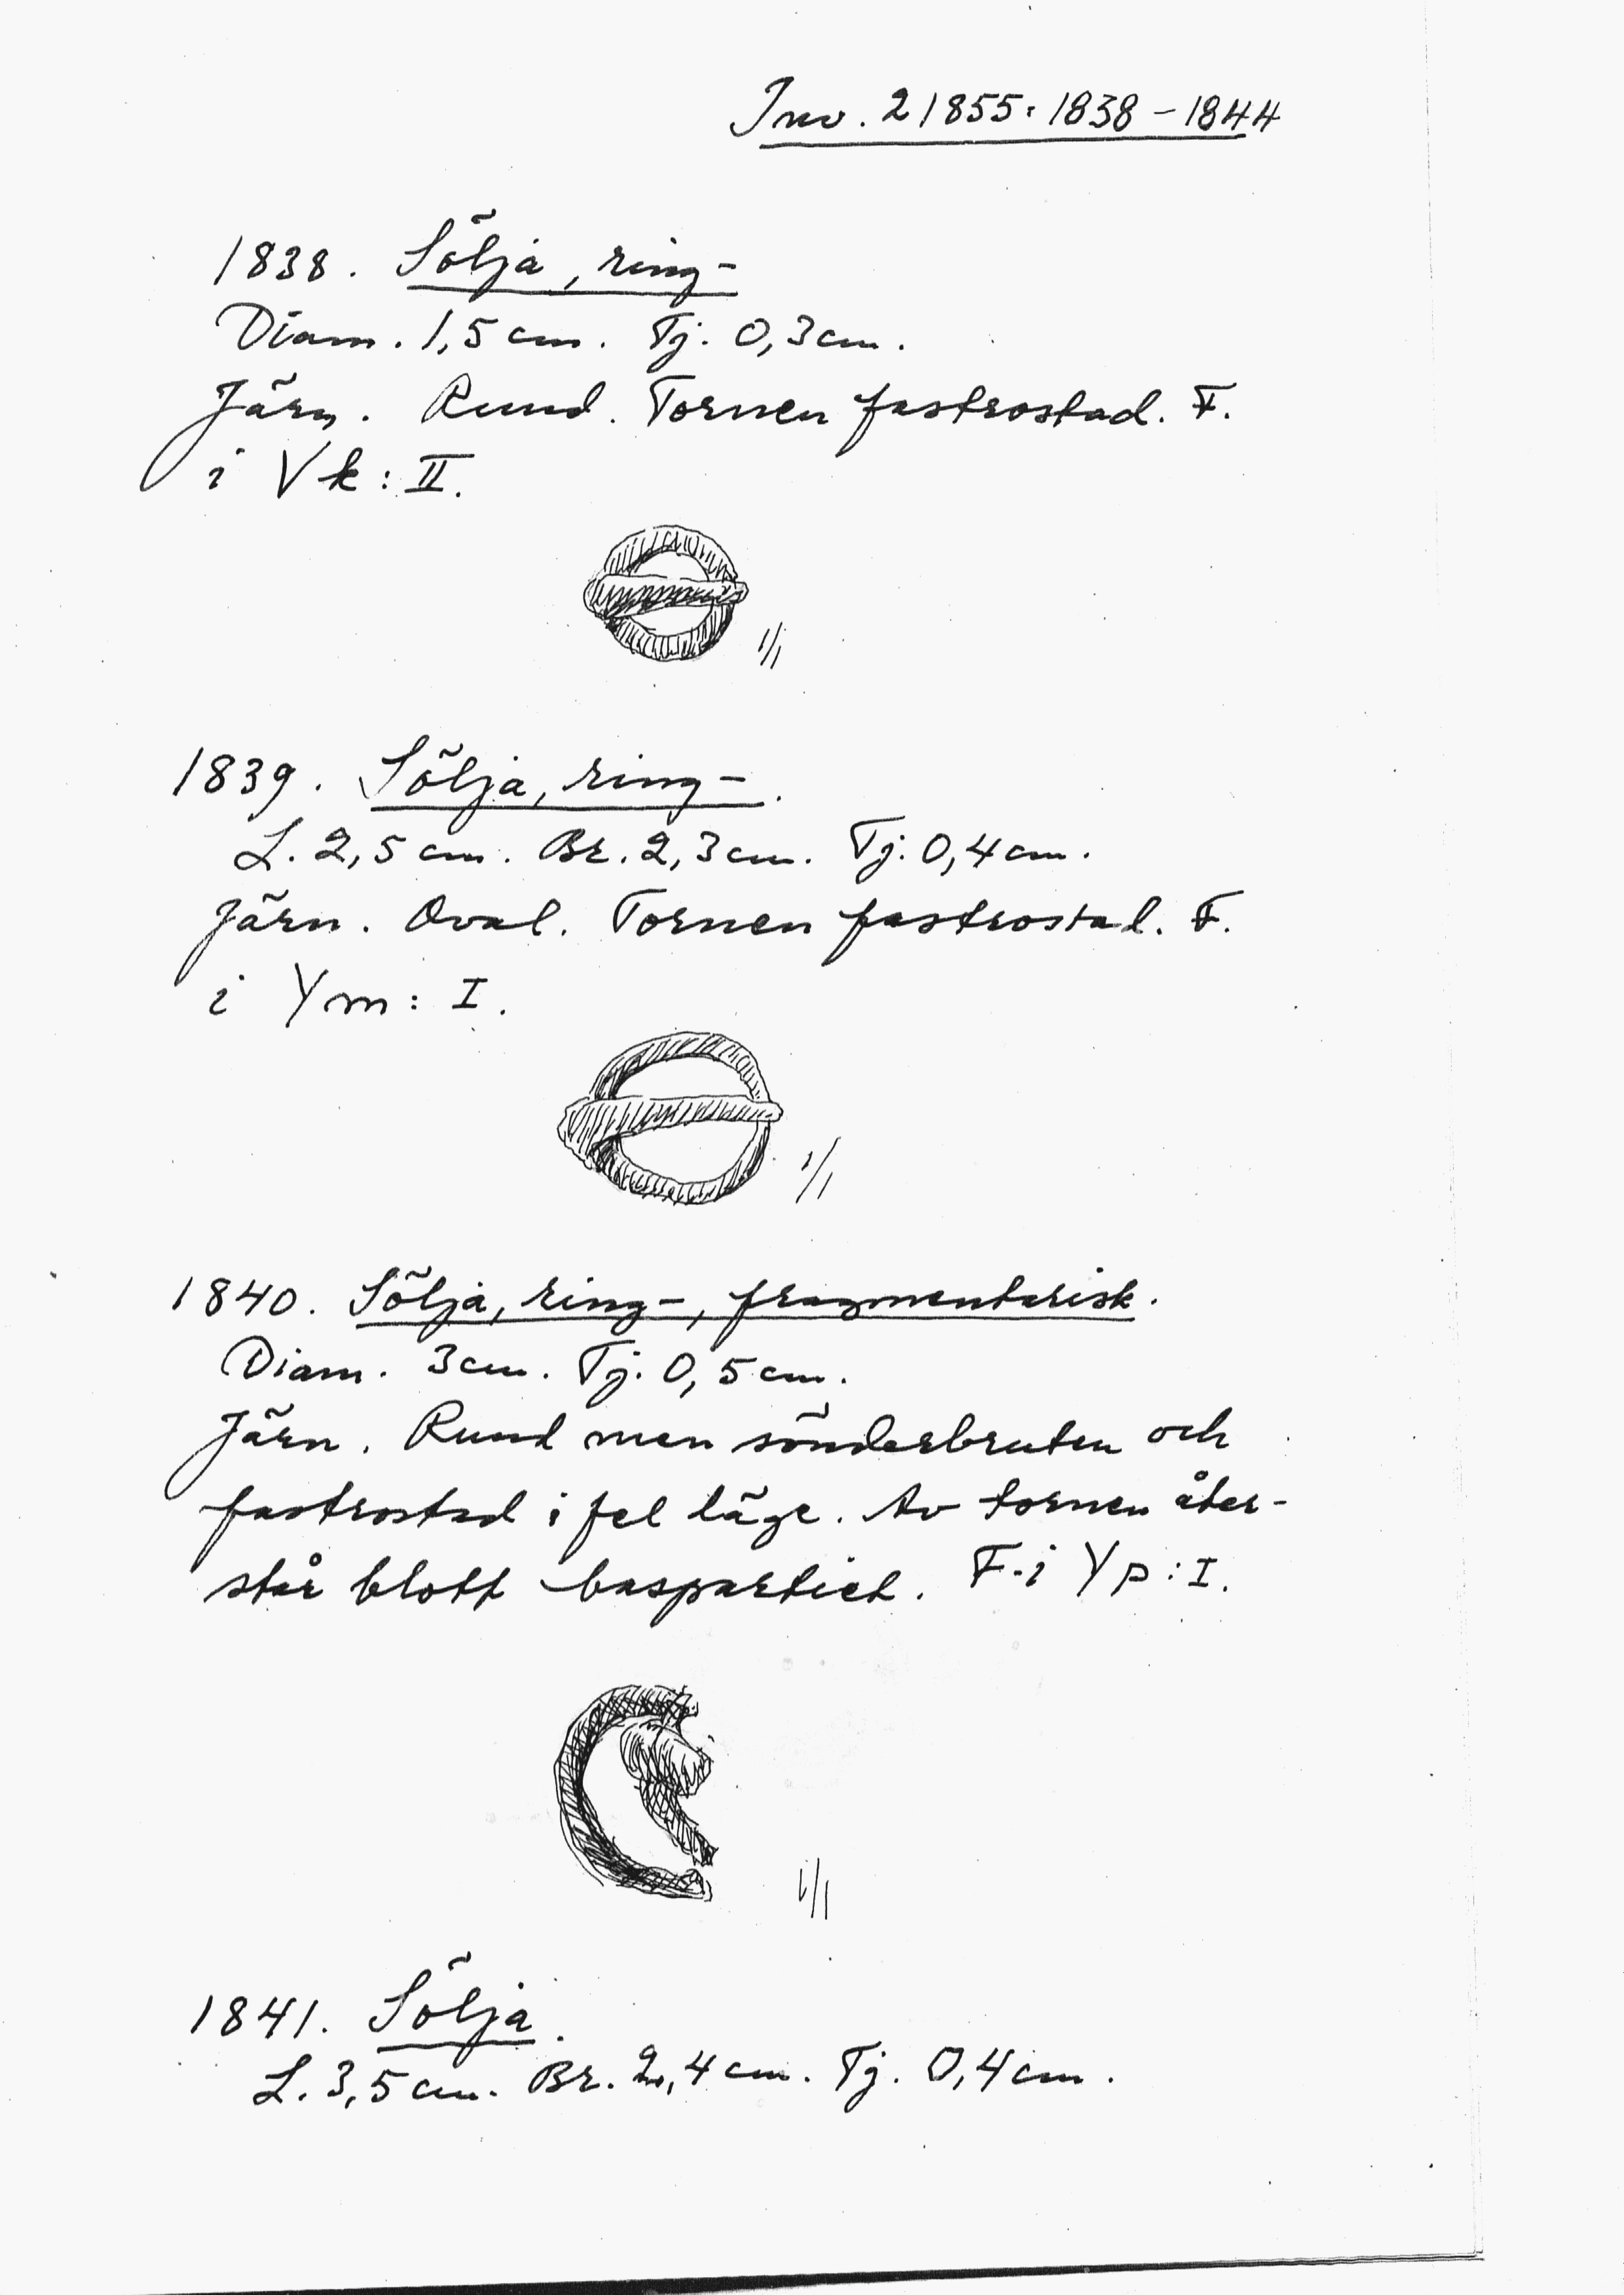 Inv. 21855:1838-1844
1838. Sölja, ring-
Diam. 1,5 cm. Tj. 0,3 cm.
Järn. Rund. Tornen fastrostad. F.
i Vk: II.
1/1
1839. Sölja, ring-.
L. 2,5 cm. Br. 2,3 cm. Tj. 0,4 cm.
Järn. Oval. Tornen fastrostad. F.
i Ym: I.
1/1
1840. Sölja, ring-, fragmentarisk.
Diam. 3 cm. Tj. 0,5 cm.
Järn. Rund men sönderbruten och
fastrostad i fel läge. Av tornen åter-
står blott baspartiet. F. i Yp: I.
1/1
1841. Sölja.
L. 3,5 cm. Br. 2,4 cm. Tj. 0,4 cm.